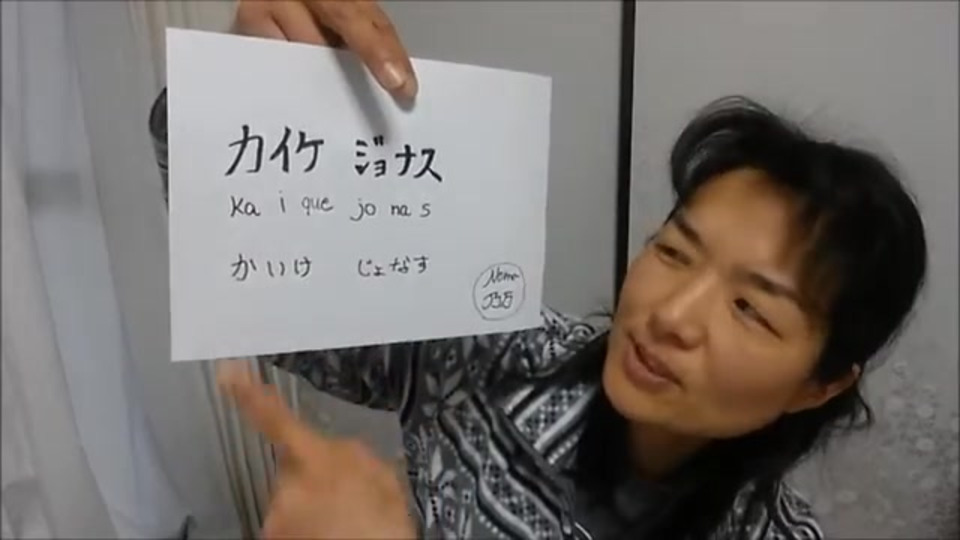 カイケ ジョナス
ka i que jo na s
かいけ じょなす